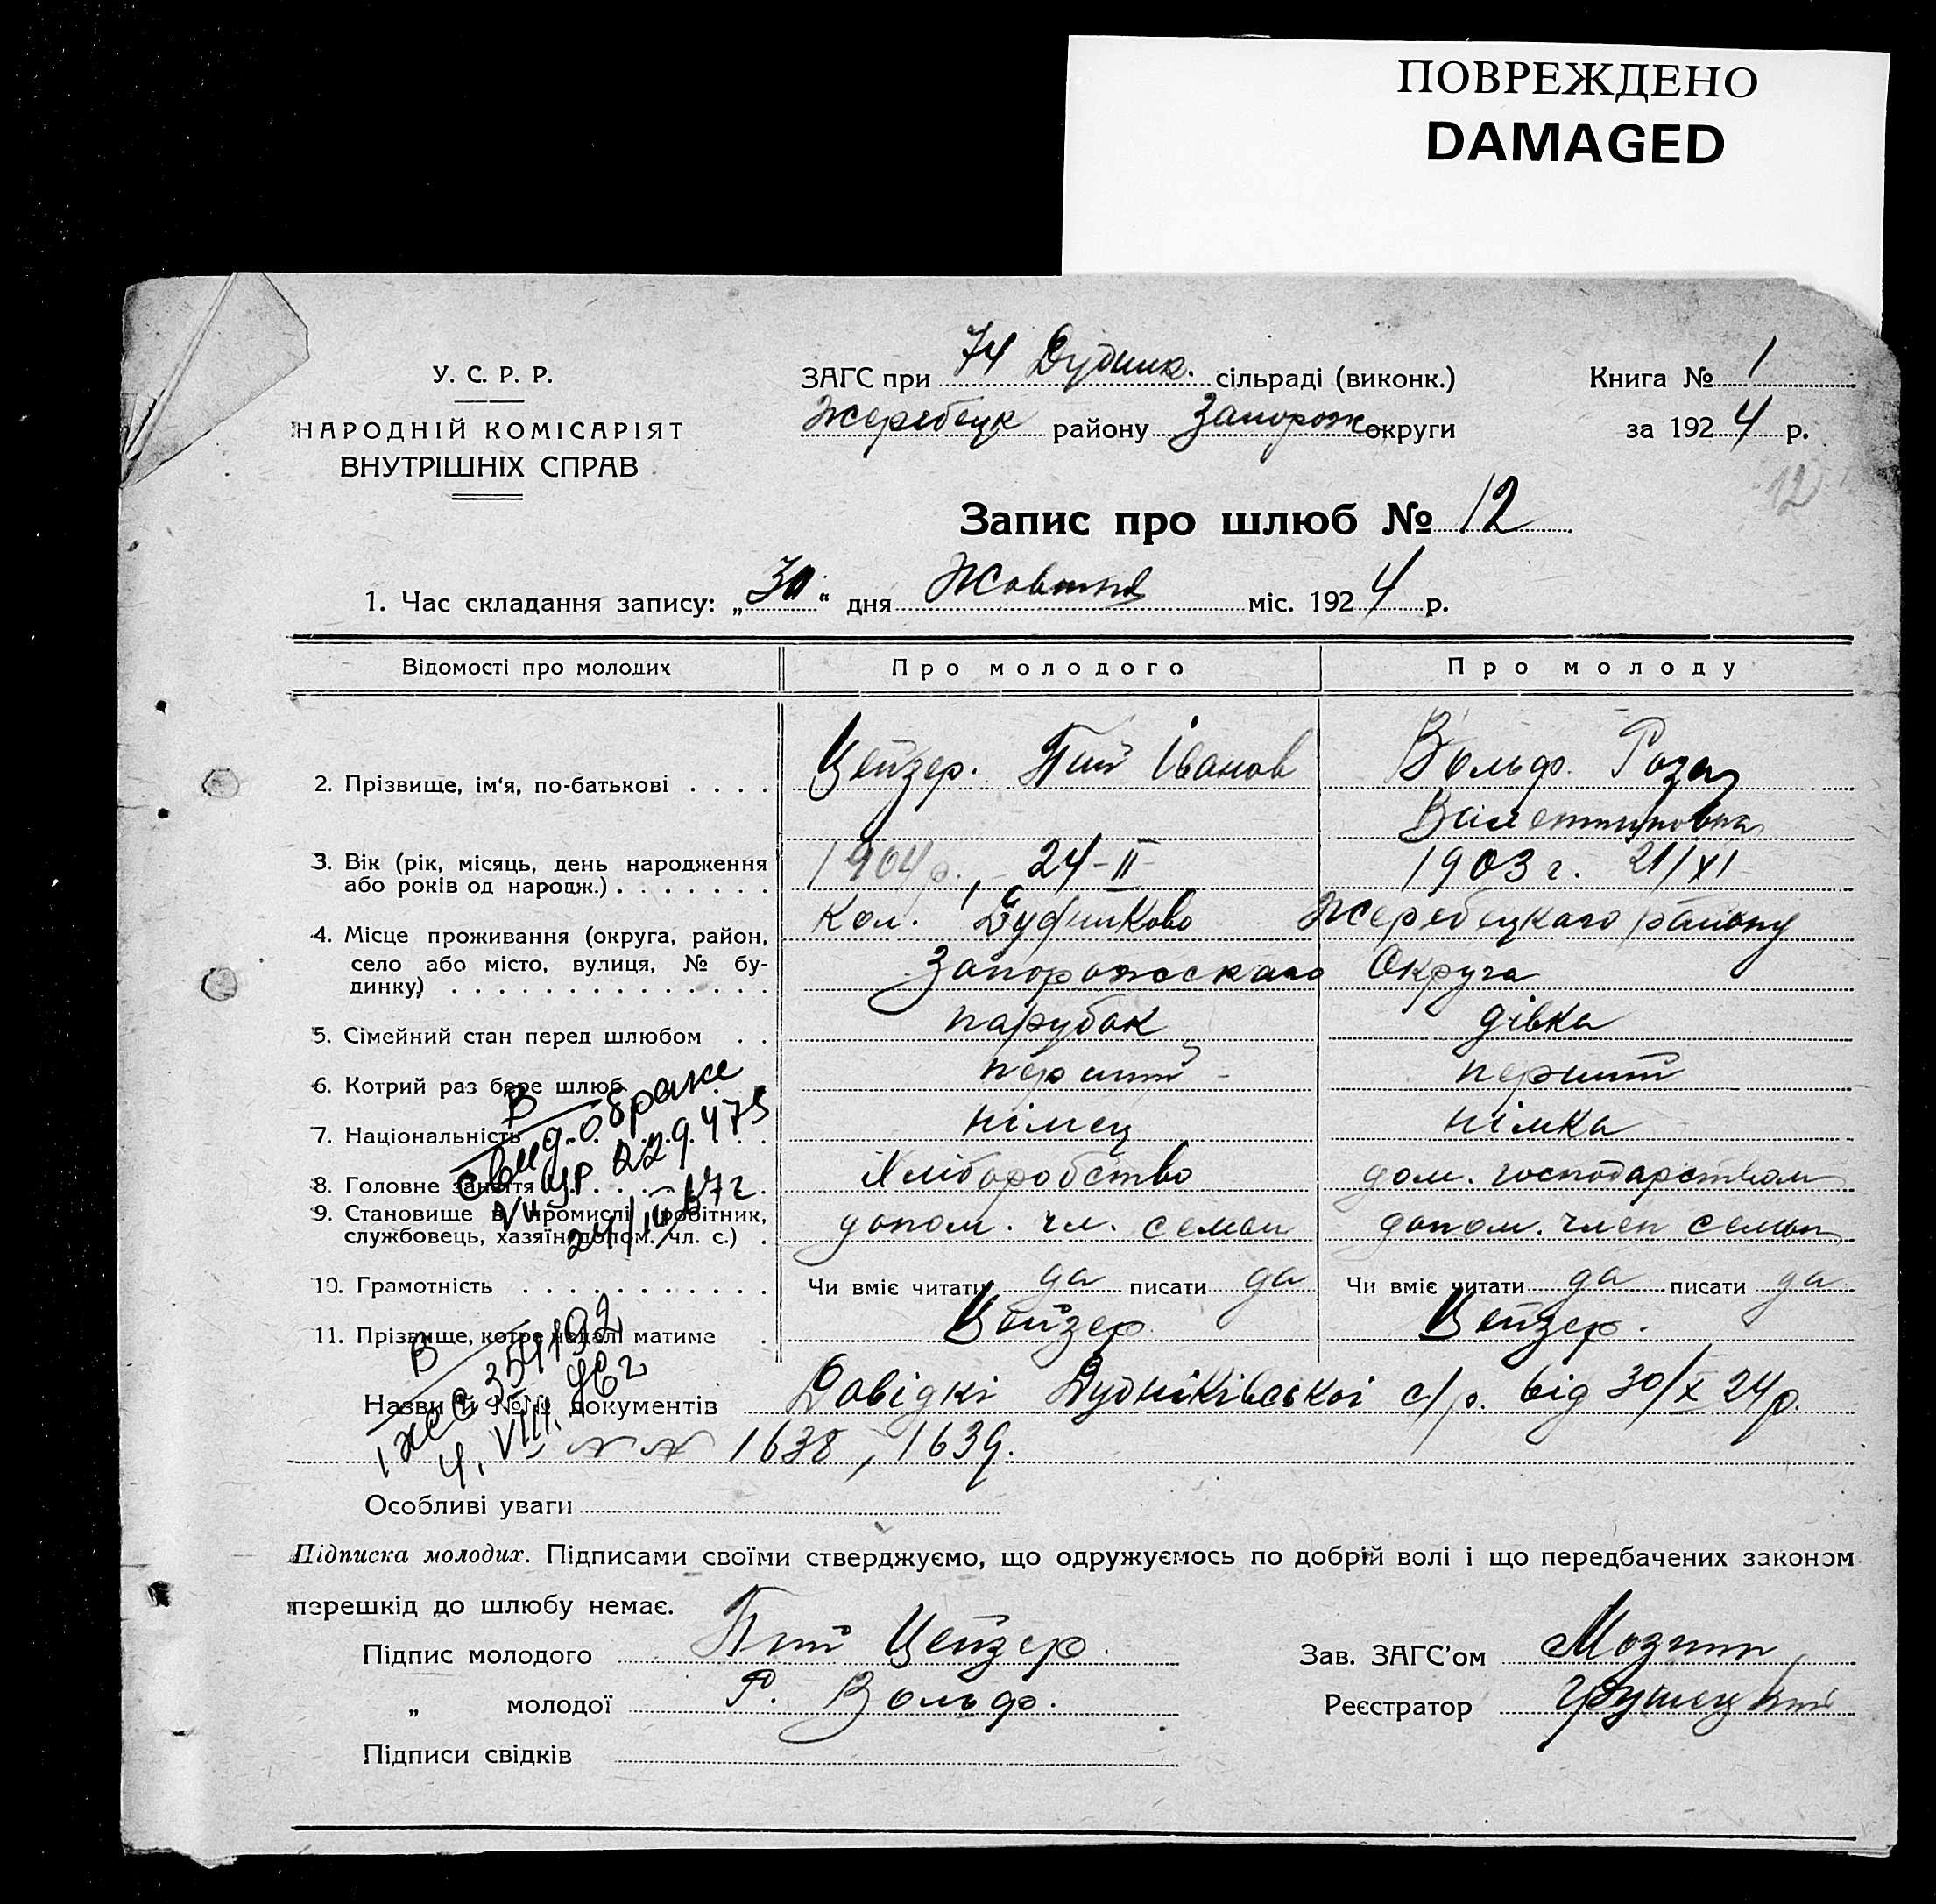 ПОВРЕЖДЕНО
DAMAGED
У. С. Р. Р.
НАРОДНІЙ КОМІСАРІЯТ
ВНУТРІШНІХ СПРАВ
ЗАГС при 74 Дудник. сільраді (виконк.)
Жеребецк району Запорож округи
Книга № 1
за 1924 р.
12
Запис про шлюб № 12
1. Час складання запису: „30“ дня Жовтня міс. 1924 р.
Відомості про молодих Про молодого Про молоду
2. Прізвище, ім'я, по-батькові . . . . Цейзер. Пий Іванов Вольф. Роза
Валентиновна
3. Вік (рік, місяць, день народження
або років од народж.) . . . . . . . 1904р., 24-II 1903 г. 21/XI
4. Місце проживання (округа, район,
село або місто, вулиця, № бу-
динку) . . . . . . . . . . . . . .
кол. Дудниково Жеребецкаго району
Запорожскаго Округа
5. Сімейний стан перед шлюбом . . парубок дівка
6. Котрий раз бере шлюб перший перший
7. Національність німец німка
8. Головне заняття Хліборобство дом. господарством
9. Становище в промислі (робітник,
службовець, хазяїн, допом. чл. с.) . допом. чл. семьи допом. член семьи
10. Грамотність . . . . . . . . . . . Чи вміє читати да писати да Чи вміє читати да писати да
11. Прізвище, котре надалі матиме . Цейзер Цейзер.
Назви й №№ документів Довідкі Дудніківської с/р. від 30/X 24р.
№ № 1638, 1639.
В
свид. о браке
24/III 47г
В
4. VIII. 46г
Особливі уваги
Підписка молодих. Підписами своїми стверджуємо, що одружуємось по добрій волі і що передбачених законом
перешкід до шлюбу немає.
Підпис молодого Пий Цейзер.
„ молодої Р. Вольф.
Підписи свідків
Зав. ЗАГС'ом
Реєстратор